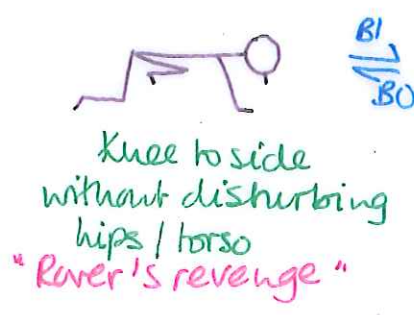 BI
BO
Knee to side
without disturbing
hips / torso
"Rover's revenge"